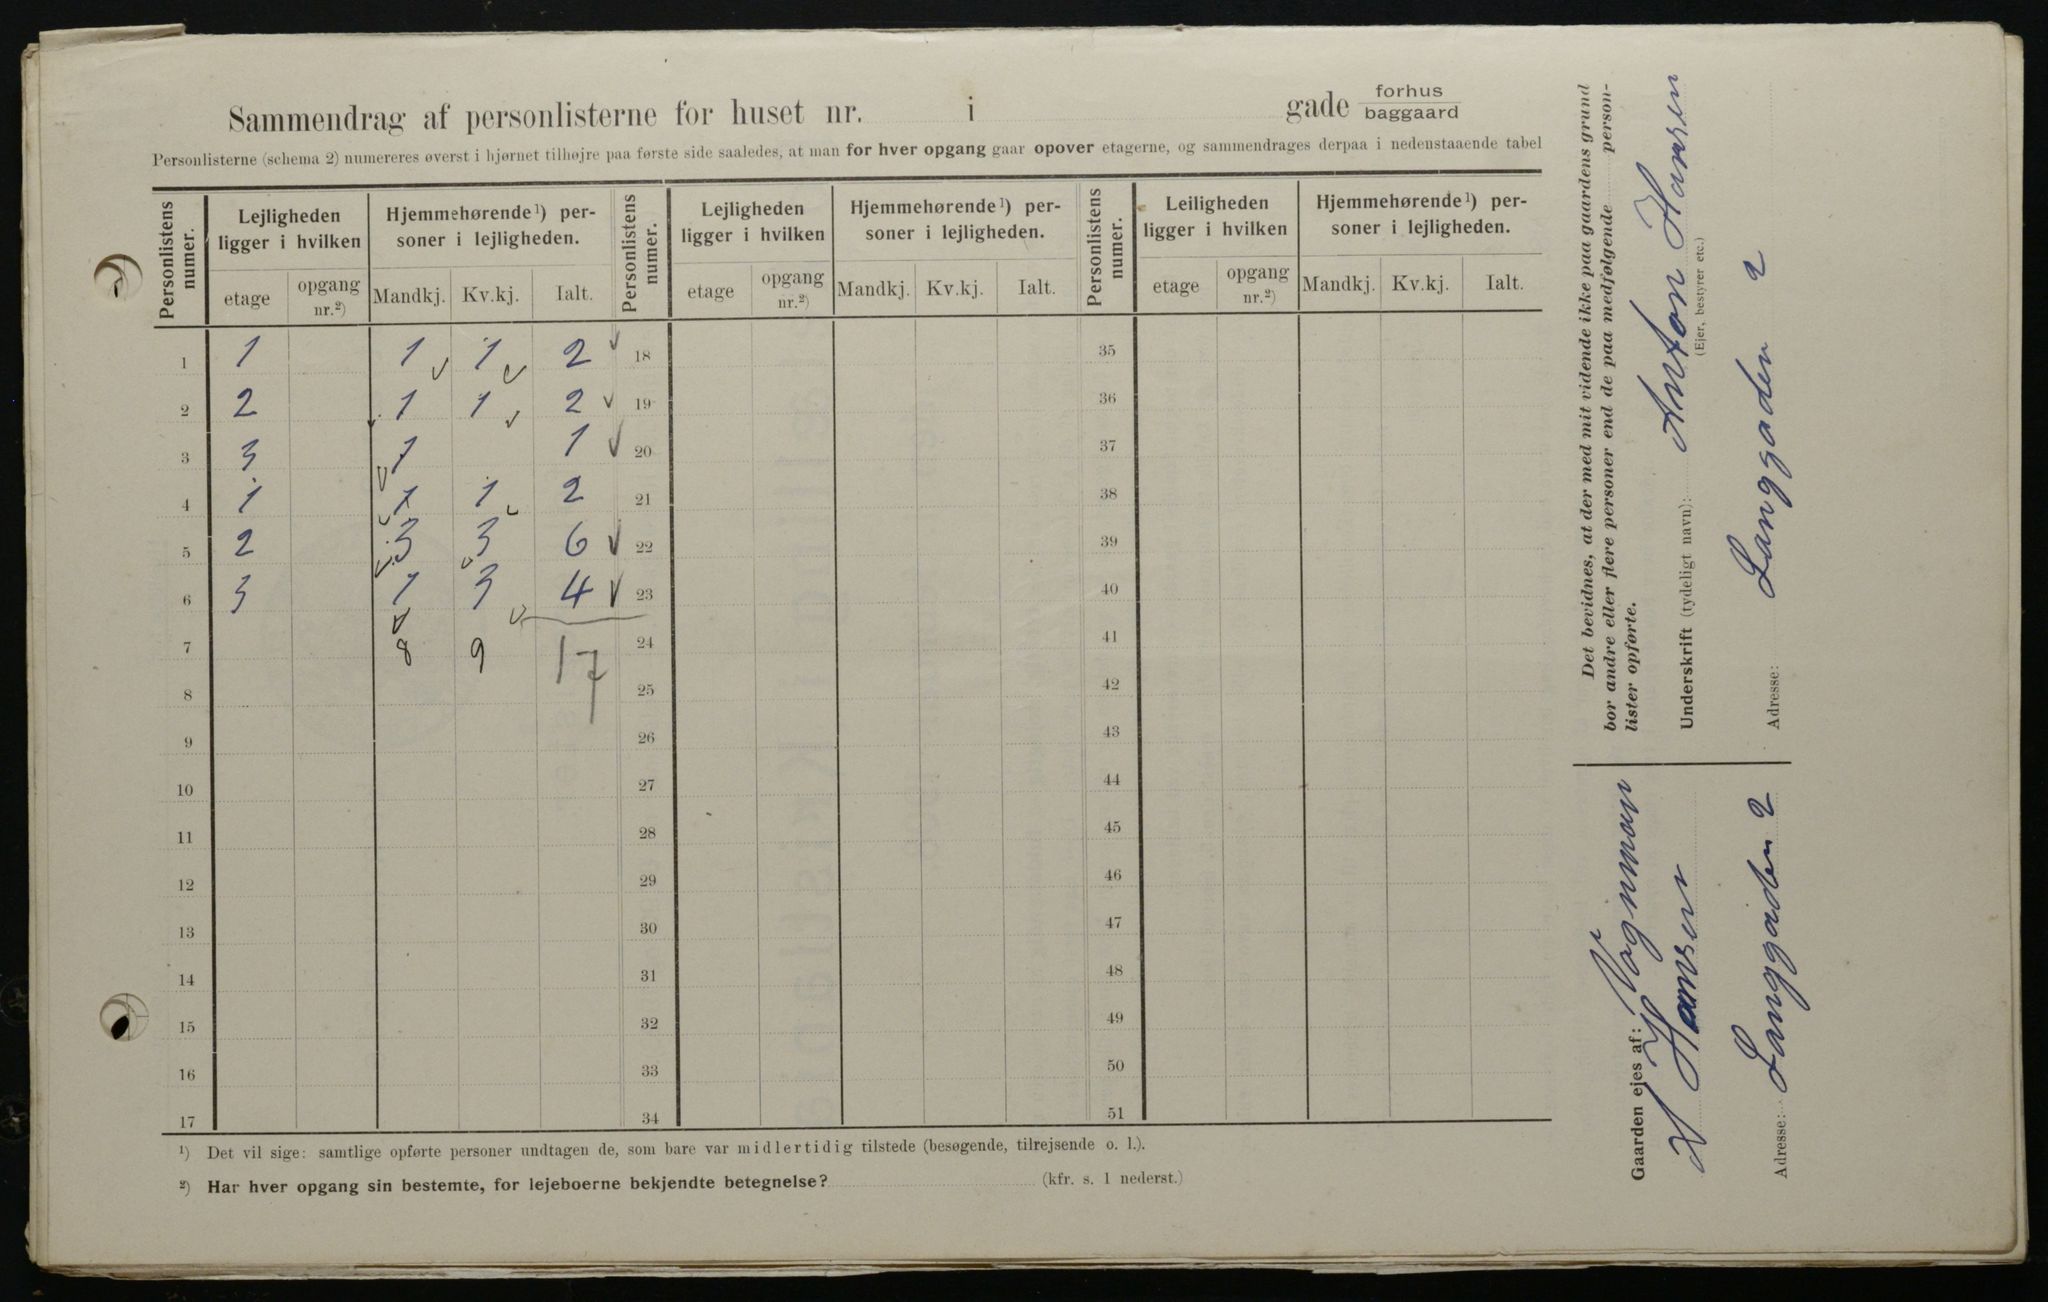 Sammendrag af personlisterne for huset nr. i gade forhus
baggaard
Personlisterne (schema 2) numereres øverst i hjørnet tilhøjre paa første side saaledes, at man for hver opgang gaar opover etagerne, og sammendrages derpaa i nedenstaaende tabel
Personlistens numer.
Lejligheden ligger i hvilken
Hjemmehørende¹) personer i lejligheden.
Personlistens numer.
Lejligheden ligger i hvilken
Hjemmehørende¹) personer i lejligheden.
Personlistens numer.
Leiligheden ligger i hvilken
Hjemmehørende¹) personer i lejligheden.
etage opgang nr.²) Mandkj. Kv.kj. Ialt. etage opgang nr.²) Mandkj. Kv.kj. Ialt. etage opgang nr.²) Mandkj. Kv.kj. Ialt.
1 1 1 1 2 18 35
2 2 1 1 2 19 36
3 3 1 1 20 37
4 1 1 1 2 21 38
5 2 3 3 6 22 39
6 3 1 3 4 23 40
7 8 9 17 24 41
8 25 42
9 26 43
10 27 44
11 28 45
12 29 46
13 30 47
14 31 48
15 32 49
16 33 50
17 34 51
¹) Det vil sige: samtlige opførte personer undtagen de, som bare var midlertidig tilstede (besøgende, tilrejsende o. l.).
²) Har hver opgang sin bestemte, for lejeboerne bekjendte betegnelse? (kfr. s. 1 nederst.)
Det bevidnes, at der med mit vidende ikke paa gaardens grund
bor andre eller flere personer end de paa medfølgende person-
lister opførte.
Underskrift (tydeligt navn): Anton Hansen
(Ejer, bestyrer etc.)
Adresse: Langgaden 2
Gaarden ejes af: Vognman
H Hansen
Adresse: Langgaden 2